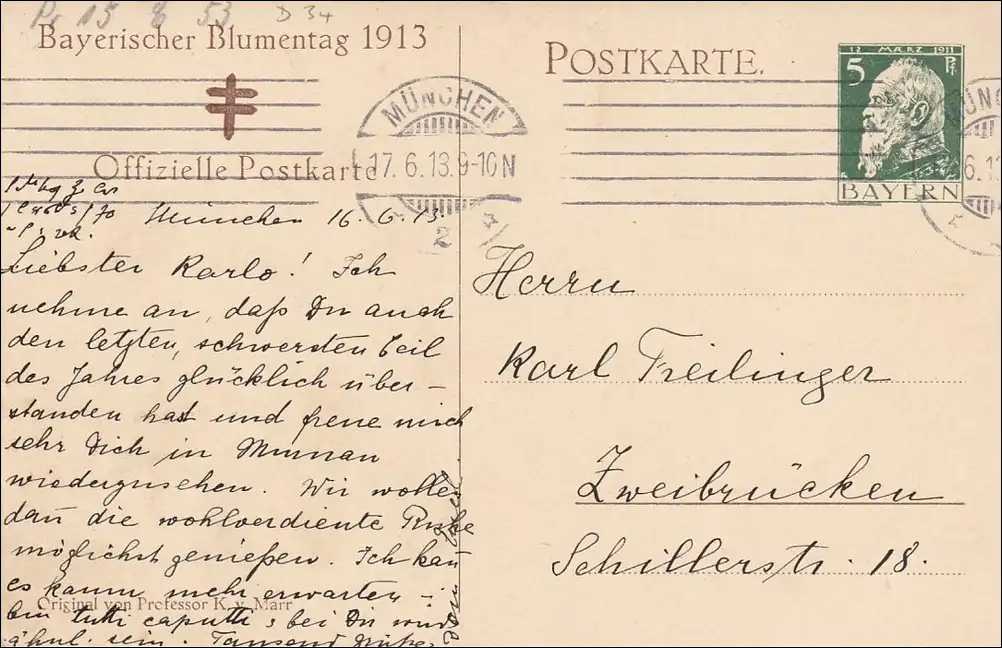 Pr 15 8 53 D 34
Bayerischer Blumentag 1913
Offizielle Postkarte
München 16. 6. 13.
Liebster Karlo! Ich
nehme an, daß Du auch
den letzten, schwersten Teil
des Jahres glücklich über-
standen hast und freue mich
sehr Dich in Murnau
wiederzusehen. Wir wollen
dan̄ die wohlverdiente Ruhe
möglichst genießen. Ich kan̄
es kaum mehr erwarten -
bin tutti caputti, bei Dir wird's
ähnl. sein. Tausend Grüße
Original von Professor K. v. Marr
POSTKARTE.
12 MÆRZ 1911
5 Pf.
BAYERN
MÜNCHEN
17. 6. 13. 9-10 N
2
Herrn
Karl Freilinger
Zweibrücken
Schillerstr. 18.